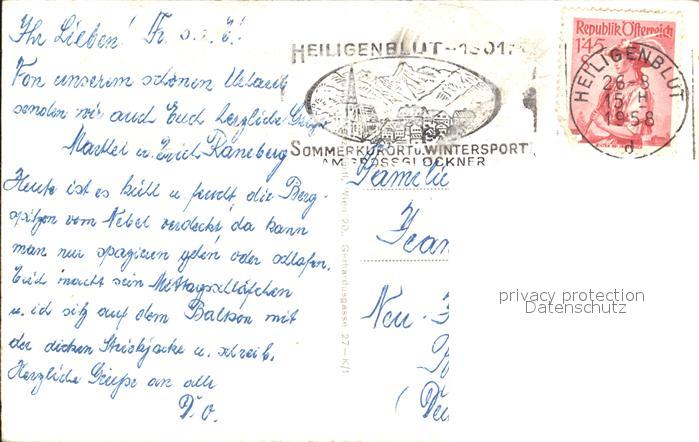 Ihr Lieben!
Von unserem schönen Urlaub
senden wir auch Euch herzliche Grüße
u. Erich Raneberg
Heute ist es kühl u. feucht, die Berg-
spitzen vom Nebel verdeckt, da kann
man nur spazieren gehen oder schlafen.
Erich macht sein Mittagsschläfchen
u. ich sitz auf dem Balkon mit
der dicken Strickjacke u. schreib.
Herzliche Grüße an alle
D. O.
HEILIGENBLUT - 1301
SOMMERKURORT u. WINTERSPORT
AM GROSSGLOCKNER
Republik Österreich
1.45 S
HEILIGENBLUT
26-8
15 H
1958
d
Wien 20, Gerhardusgasse 27 - K/1
Familie
Neu-
privacy protection
Datenschutz